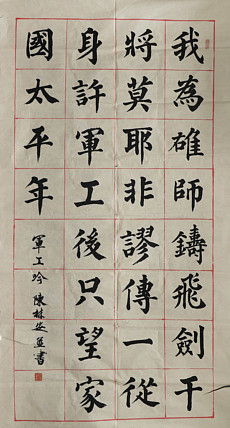 我為雄師鑄飛劍干
將莫耶非謬傳一從
身許軍工後只望家
國太平年
軍工吟 陳林
書